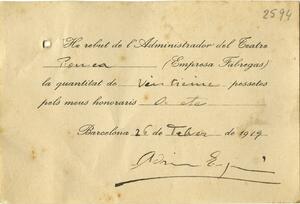 2594
He rebut de l'Administrador del Teatre
(Empresa Fàbregas)
la quantitat de Vinticinc pessetes
pels meus honoraris
Barcelona 26 Febrer de 1919